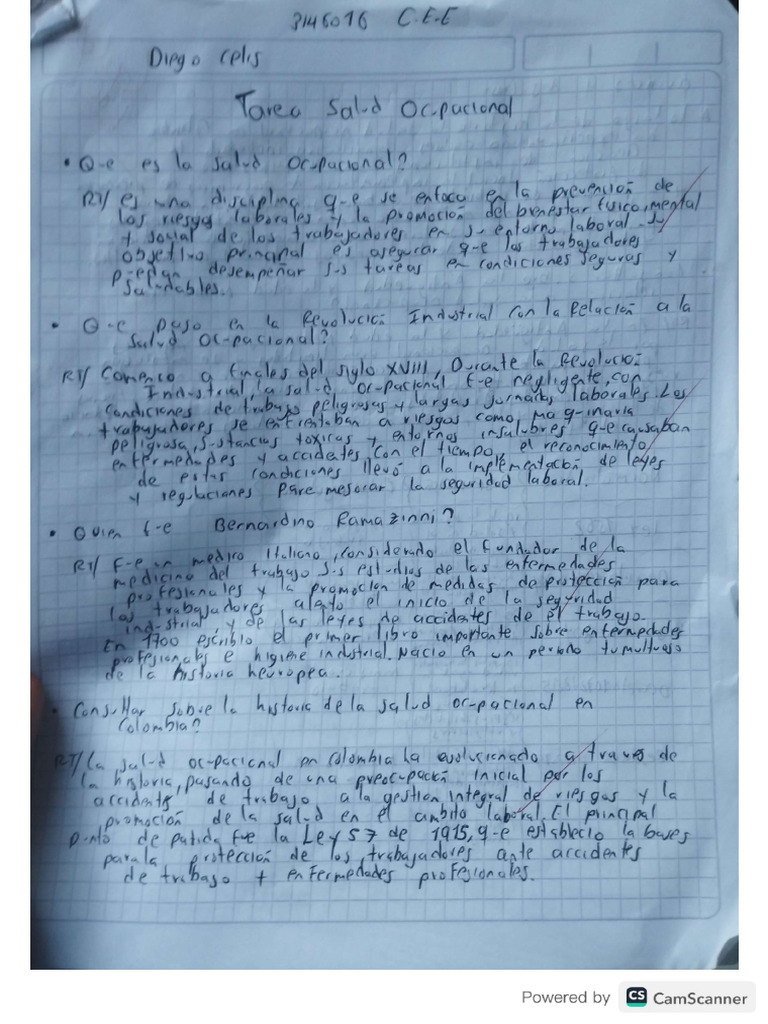 3146016 C.E.E
Diego Celis
Tarea Salud Ocupacional
• Que es la salud Ocupacional?
RT/ es una disciplina que se enfoca en la prevención de
los riesgos laborales y la promoción del bienestar fisico, mental
y social de los trabajadores en su entorno laboral. Su
objetivo principal es asegurar que los trabajadores
puedan desempeñar sus tareas en condiciones seguras y
saludables.
• Que paso en la Revolución Industrial con la Relación a la
salud Ocupacional?
RT/ Comenzo a finales del siglo XVIII, Durante la Revolución
Industrial, la salud, ocupacional fue negligente, con
condiciones de trabajo peligrosas y largas jornadas laborales. Los
trabajadores se enfrentaban a riesgos como, maquinaria
peligrosa, sustancias toxicas y entornos insalubres que causaban
enfermedades y accidentes, Con el tiempo, el reconocimiento
de estas condiciones llevó a la implementación de leyes
y regulaciones para mejorar la seguridad laboral.
• Quien fue Bernardino Ramazinni?
RT/ Fue un medico Italiano, considerado el fundador de la
medicina del trabajo sus estudios de las enfermedades
profesionales y la promocion de medidas de protección para
los trabajadores alento el inicio de la seguridad
industrial, y de las leyes de accidentes de el trabajo.
En 1700 escribio el primer libro importante sobre enfermedades
profesionales e higiene industrial. Nacio en un periodo tumultuoso
de la historia heuropea.
• Consultar sobre la historia de la salud ocupacional en
Colombia?
RT/ La salud ocupacional en colombia ha evolucionado a traves de
la historia, pasando de una preocupación inicial por los
accidentes de trabajo a la gestion integral de riesgos y la
promoción de la salud en el ambito laboral. El principal
punto de patida fue la Ley 57 de 1915, que establecio la bases
para la protección de los trabajadores ante accidentes
de trabajo y enfermedades profesionales.
Powered by CS CamScanner